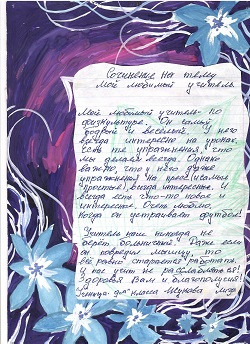 Сочинение на тему
Мой любимый учитель.
Мой любимый учитель по
физкультуре. Он самый
добрый и весёлый. У него
всегда интересно на уроках,
есть те упражнения, что
мы делаем всегда. Однако
важно, что у него даже
упражнения на пресс(самые
простые) всегда интересные. И
всегда есть что-то новое и
интересное. Очень люблю,
когда он устраивает футбол!
Учитель наш никогда не
берёт больничный. Даже если
он повредил мышцу, то
всё равно старается работать.
И нас учит не расслабляться!
Здоровья Вам и благополучия!
Ученица класса Шукова Лиза